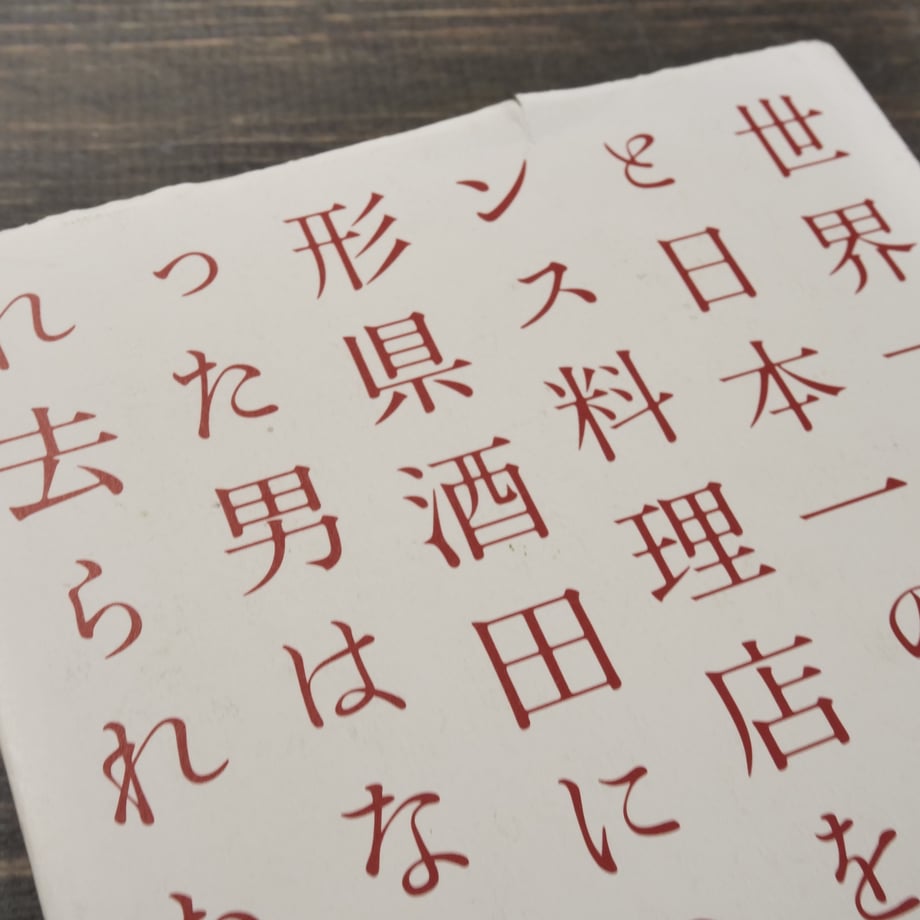 世界一
と日本一の
ンス料理店を
形県酒田に
った男はな
れ去られ